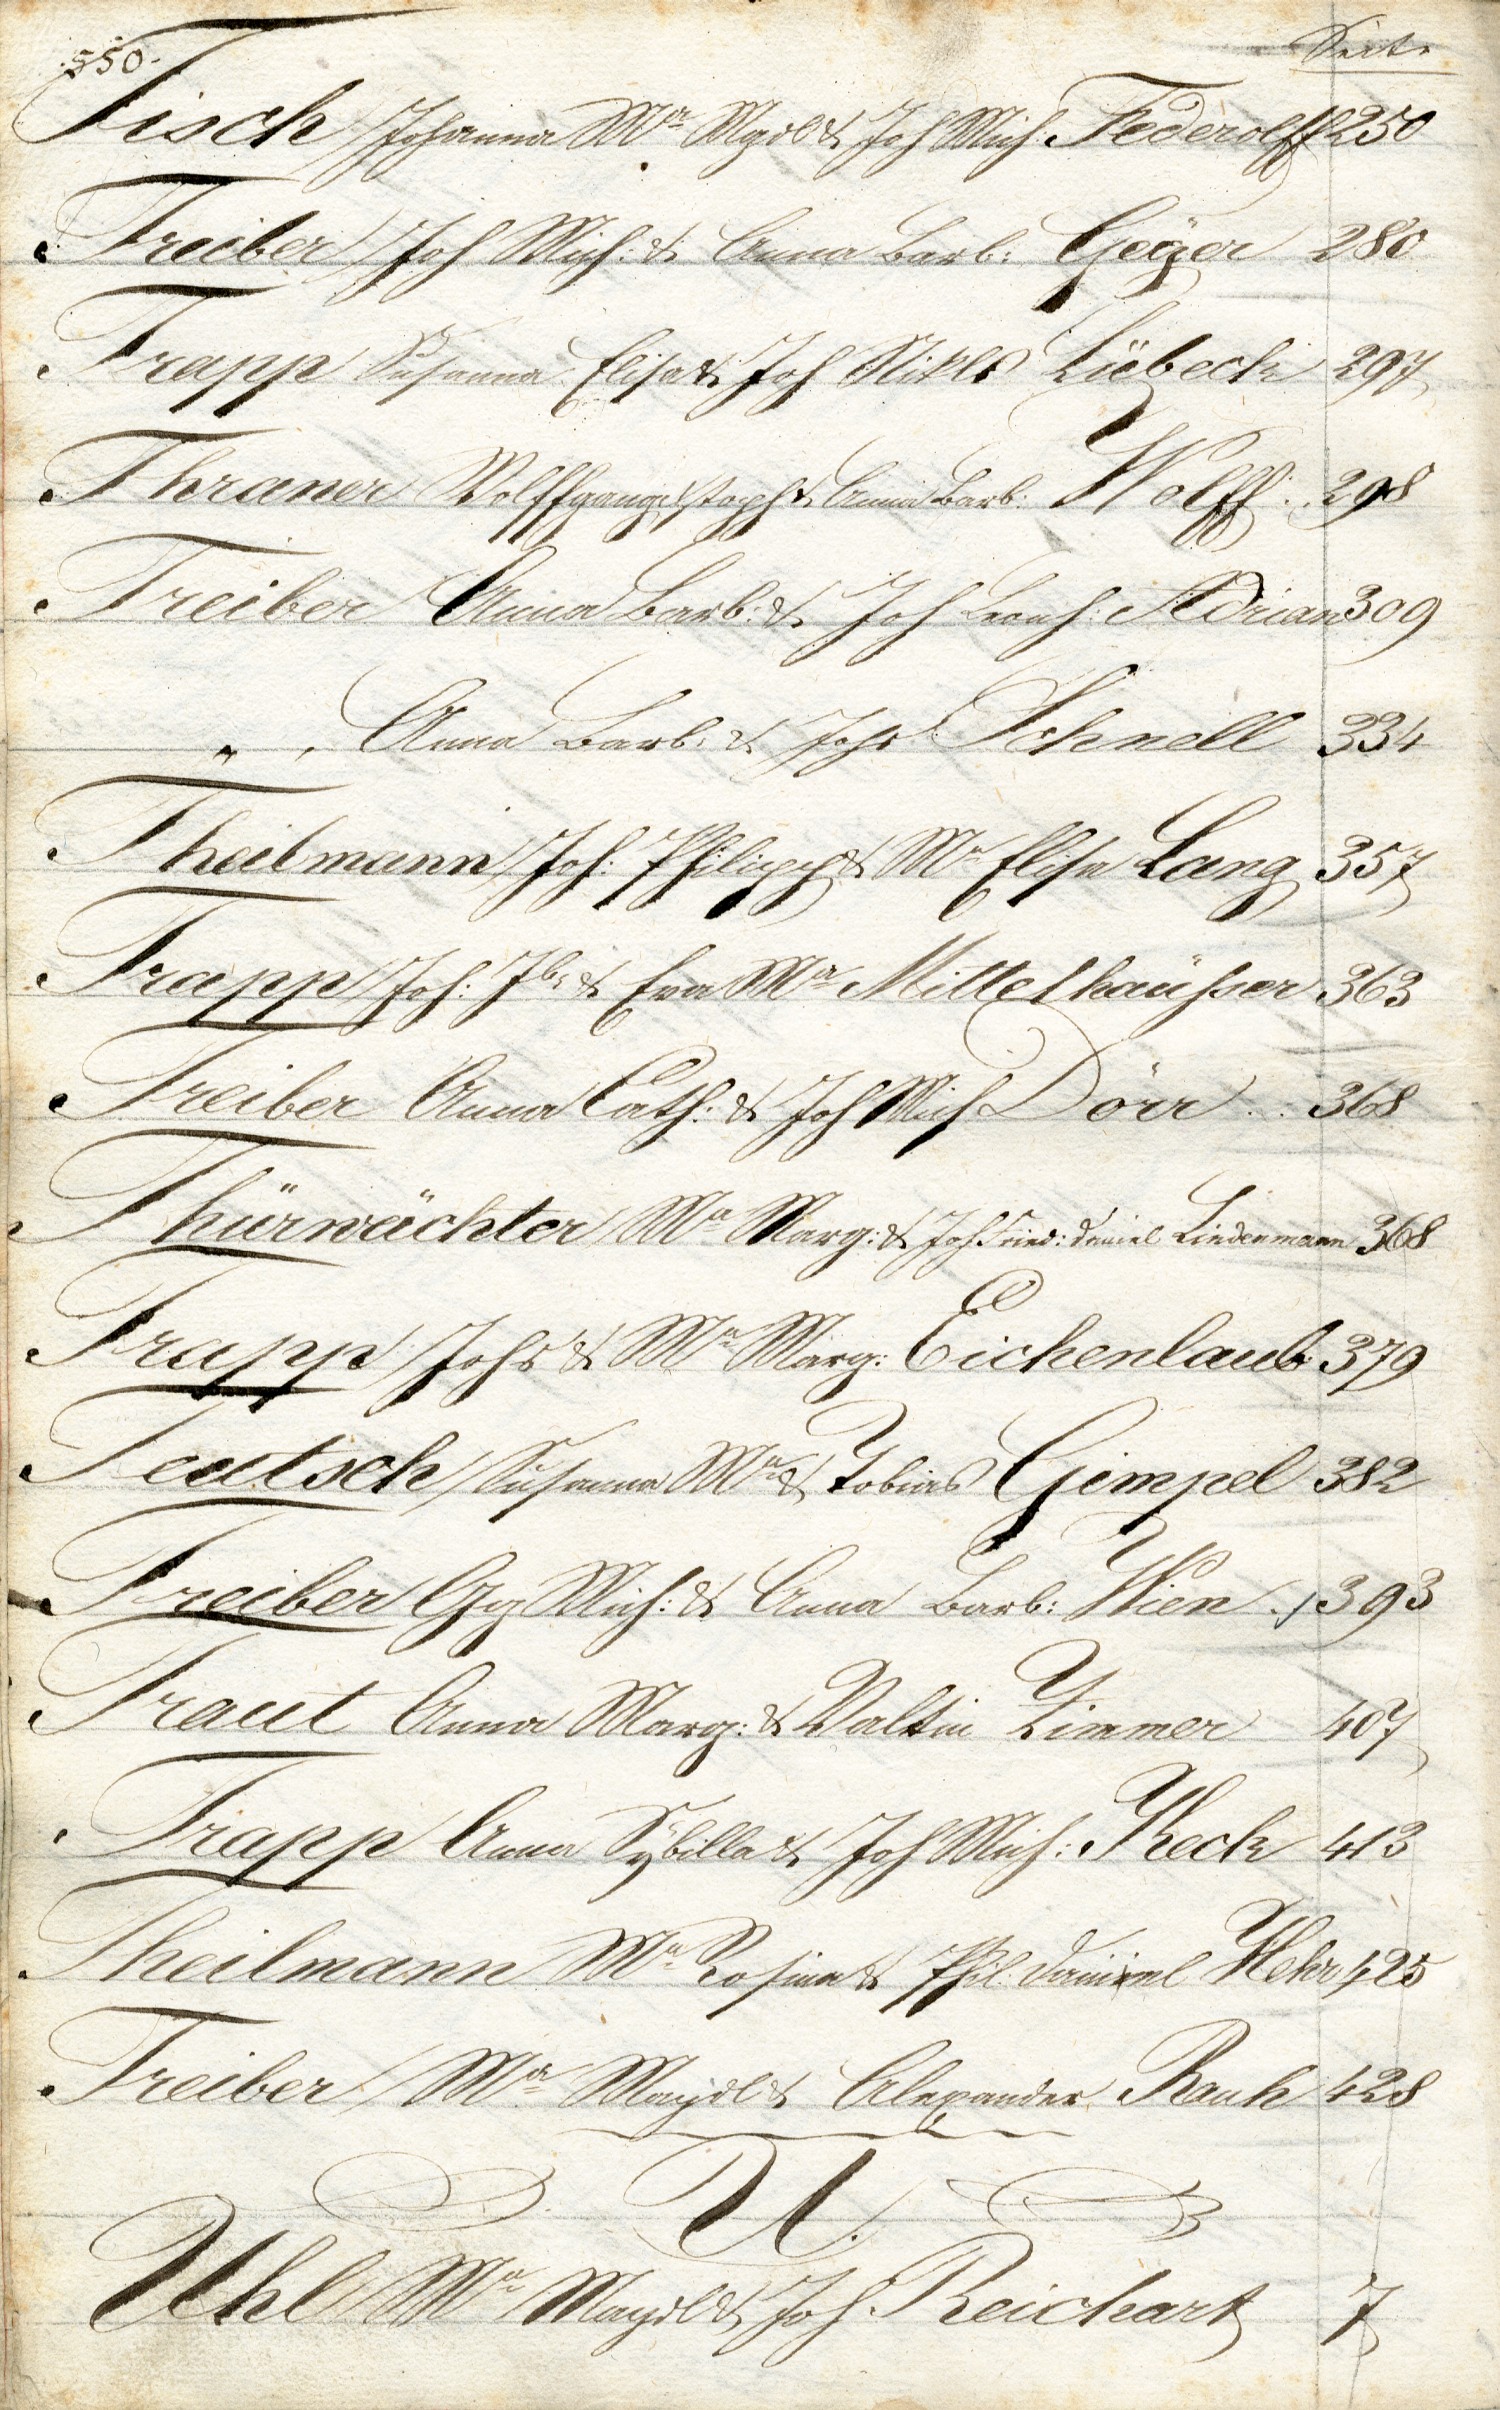 550.
Seite
Tisch Johanna Ma Magdl & Joh Mich: Federolff 250
Treiber Joh Mich: & Anna Barb: Geÿer 280
Trapp Susanna Elisa & Joh Nikls Lübeck 297
Thraner Wolffgang & Anna Barb: Wolff 298
Treiber Anna Barb: & Joh Leonh: Adrian 309
" " Anna Barb: & Johs Schnell 334
Theilmann Joh: Philipp & Ma Elisa Lang 357
Trapp Joh: Jb: & Eva Ma Mittelhaüßer 363
Treiber Anna Cath: & Joh Mich Dörr .. 368
Thürwächter Ma Marg: & Joh Fried: Daniel Lindenmann 368
Trapp Johs & Ma Marg: Eichenlaub 379
Teutsch Susanna Ma & Tobias Gimpel 382
Treiber Gg Mich: & Anna Barb: Wien . 393
Traut Anna Marg: & Valtin Zimmer 407
Trapp Anna Sÿbilla & Joh Mich: Keck 413
Theilmann Ma Rosina & Phil: Daniel Wehr 425
Treiber Ma Magdl & Alexander Rauh 428
U.
Uhl Ma Magdl & Joh Reichart 7